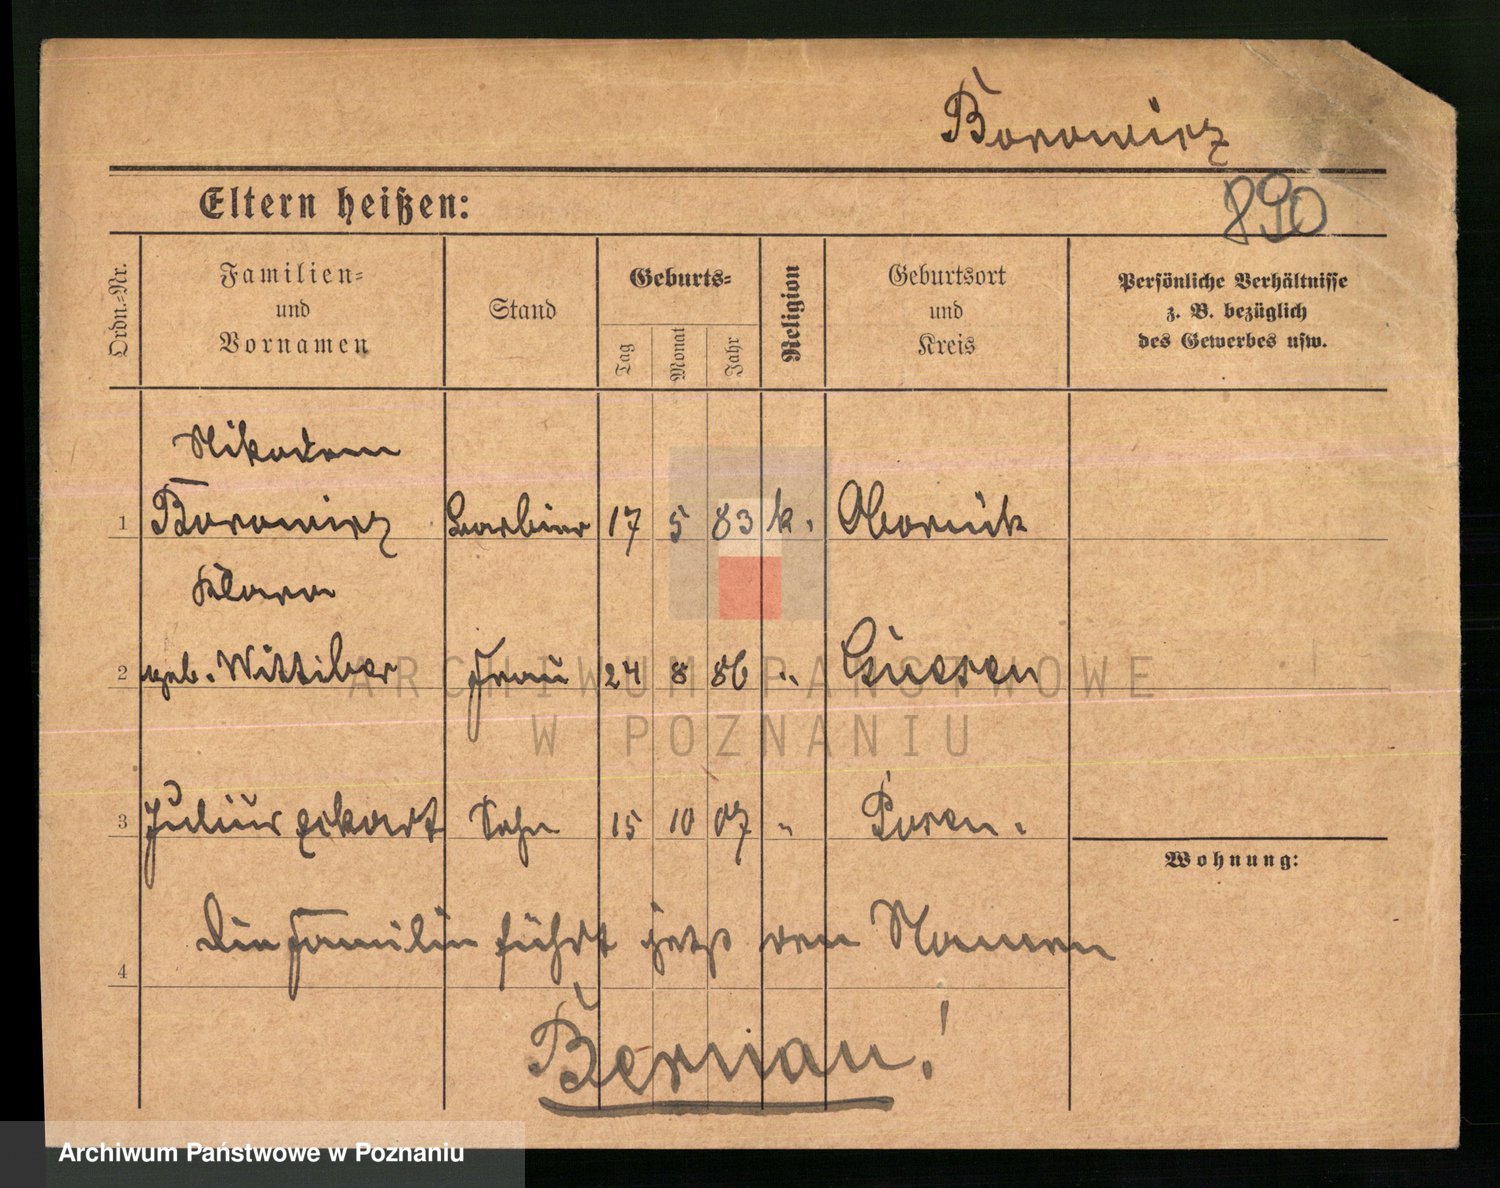 Borowicz
Eltern heißen:
890
Ordn.=Nr.
Familien=
und
Vornamen
Stand
Geburts=
Tag
Monat
Jahr
Religion
Geburtsort
und
Kreis
Persönliche Verhältnisse
z. B. bezüglich
des Gewerbes usw.
Nikodem
1 Borowicz Barbier 17 5 83 k. Obornik
Klara
2 geb. Wittiber Frau 24 8 86 " Gnesen
3 Julius Eckart Sohn 15 10 07 " Posen.
Wohnung:
4 Die Familie führt jetzt den Namen
Bernau!
ARCHIWUM PAŃSTWOWE
W POZNANIU
Archiwum Państwowe w Poznaniu